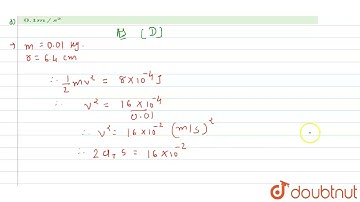 D) 0.1m/s²
A) [D]
→ m = 0.01 kg.
r = 6.4 cm
∴ 1/2 mv² = 8×10⁻⁴ J
∴ v² = 16×10⁻⁴ / 0.01
∴ v² = 16×10⁻² (m/s)²
∴ 2a_T s = 16×10⁻²
doubtnut